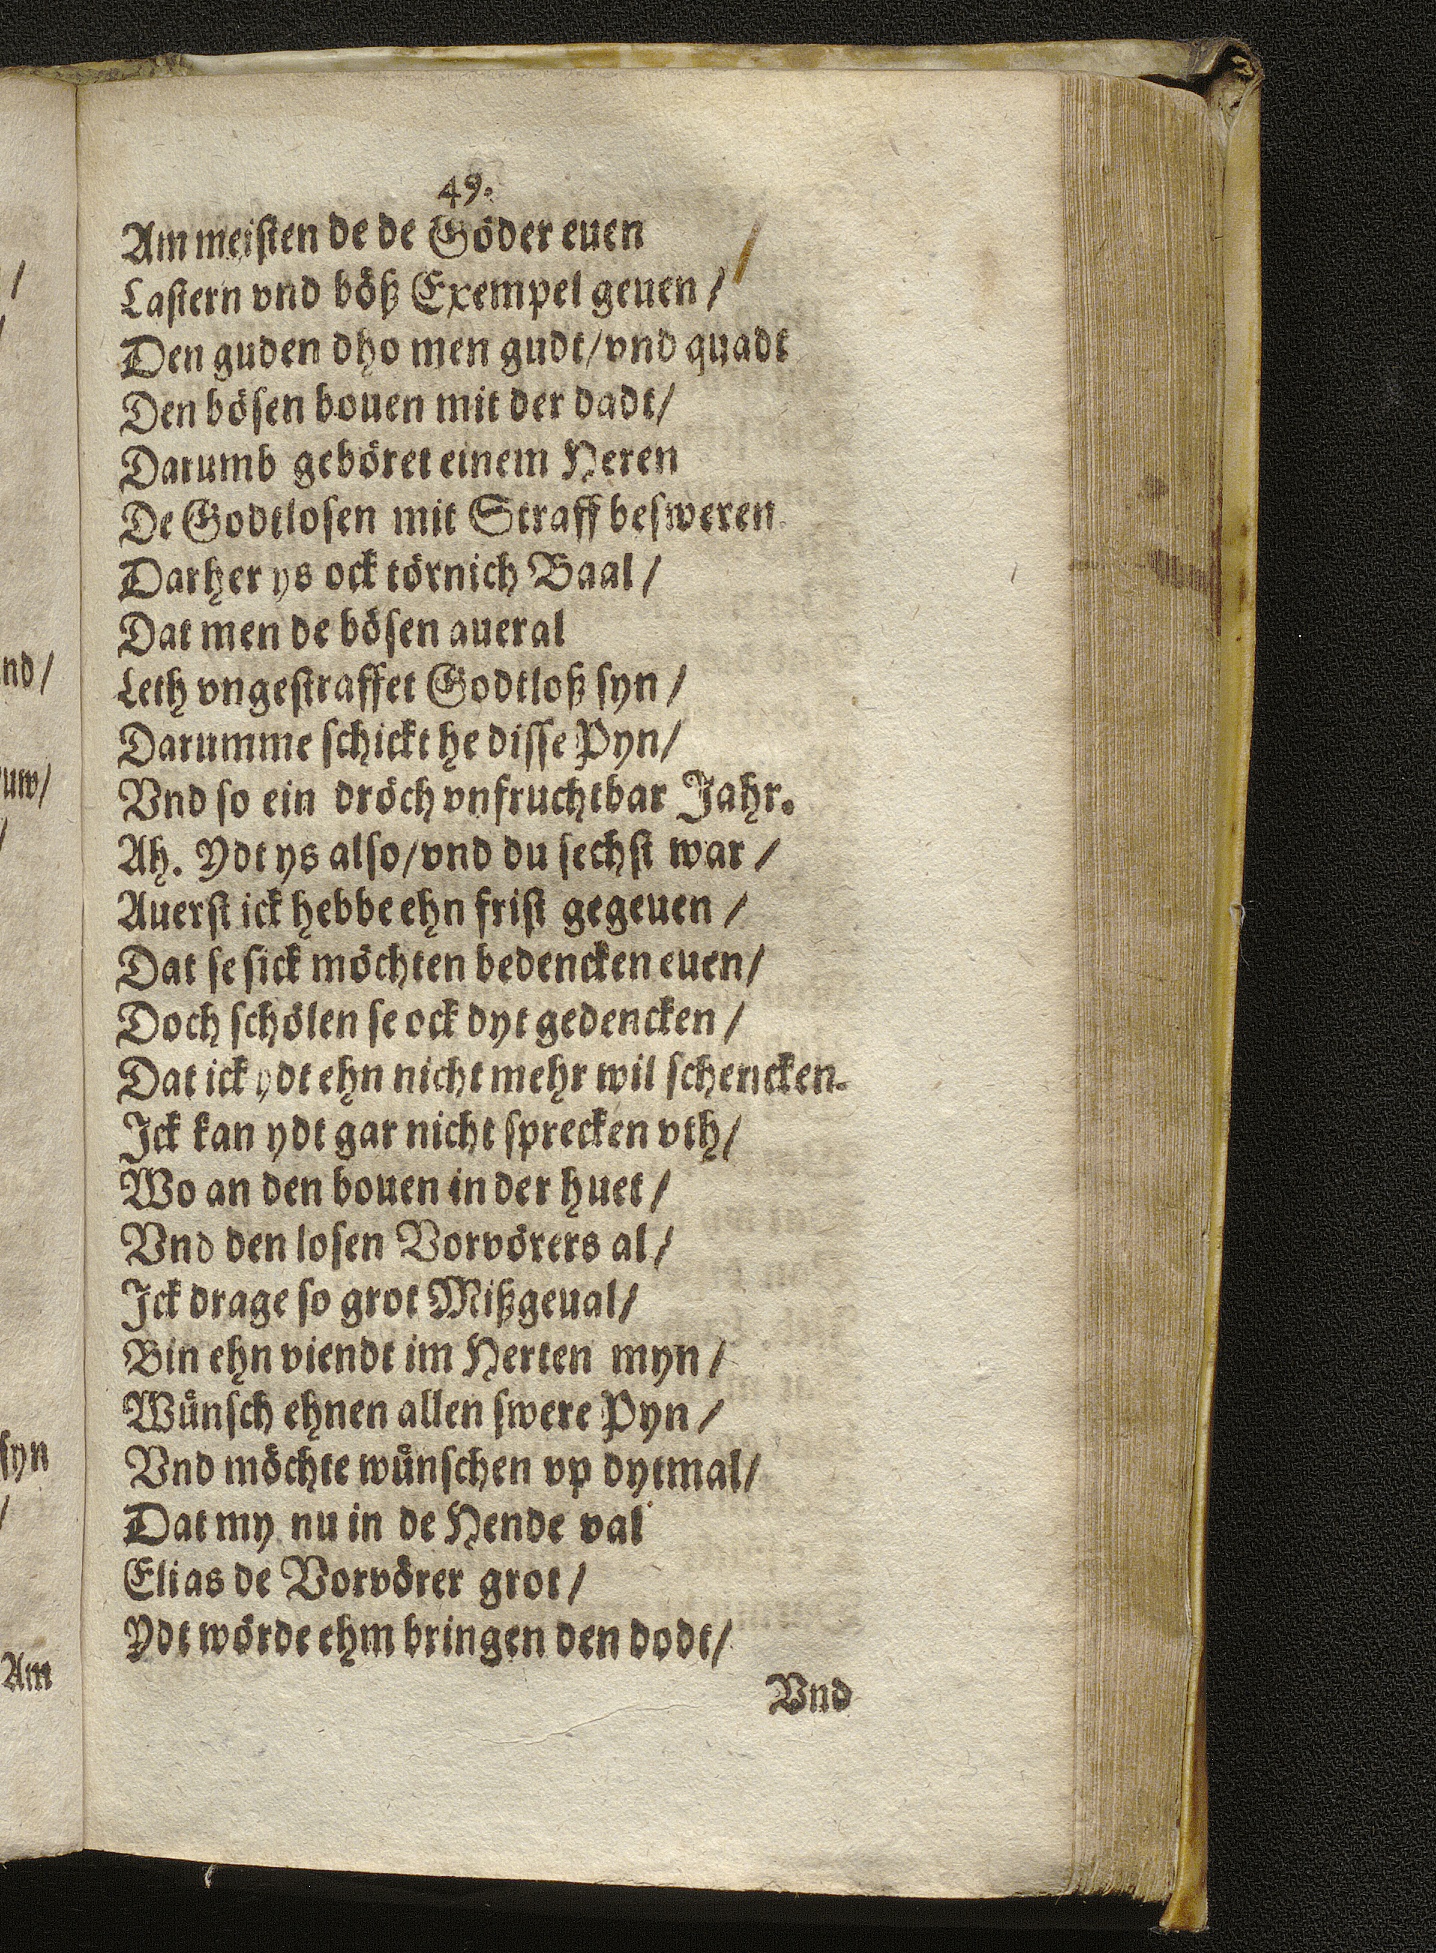 49.
Am meisten de de Göder euen
Lastern vnd böß Exempel geuen /
Den guden dho men gudt/ vnd quadt
Den bösen bouen mit der dadt/
Darumb geböret einem Heren
De Godtlosen mit Straff besweren.
Darher ys ock törnich Baal /
Dat men de bösen aueral
Leth vngestraffet Godtloß syn /
Darumme schickt he disse Pyn/
Vnd so ein dröch vnfruchtbar Jahr.
Ah. Ydt ys also/ vnd du sechst war /
Auerst ick hebbe ehn frist gegeuen /
Dat se sick möchten bedencken euen/
Doch schölen se ock dyt gedencken /
Dat ick ydt ehn nicht mehr wil schencken.
Ick kan ydt gar nicht sprecken vth/
Wo an den bouen in der huet /
Vnd den losen Vorvörers al /
Ick drage so grot Mißgeual/
Bin ehn viendt im Herten myn /
Wünsch ehnen allen swere Pyn /
Vnd möchte wünschen vp dytmal/
Dat my nu in de Hende val
Elias de Vorvörer grot /
Ydt wörde ehm bringen den dodt/
Vnd
nd/
uw/
syn
Am